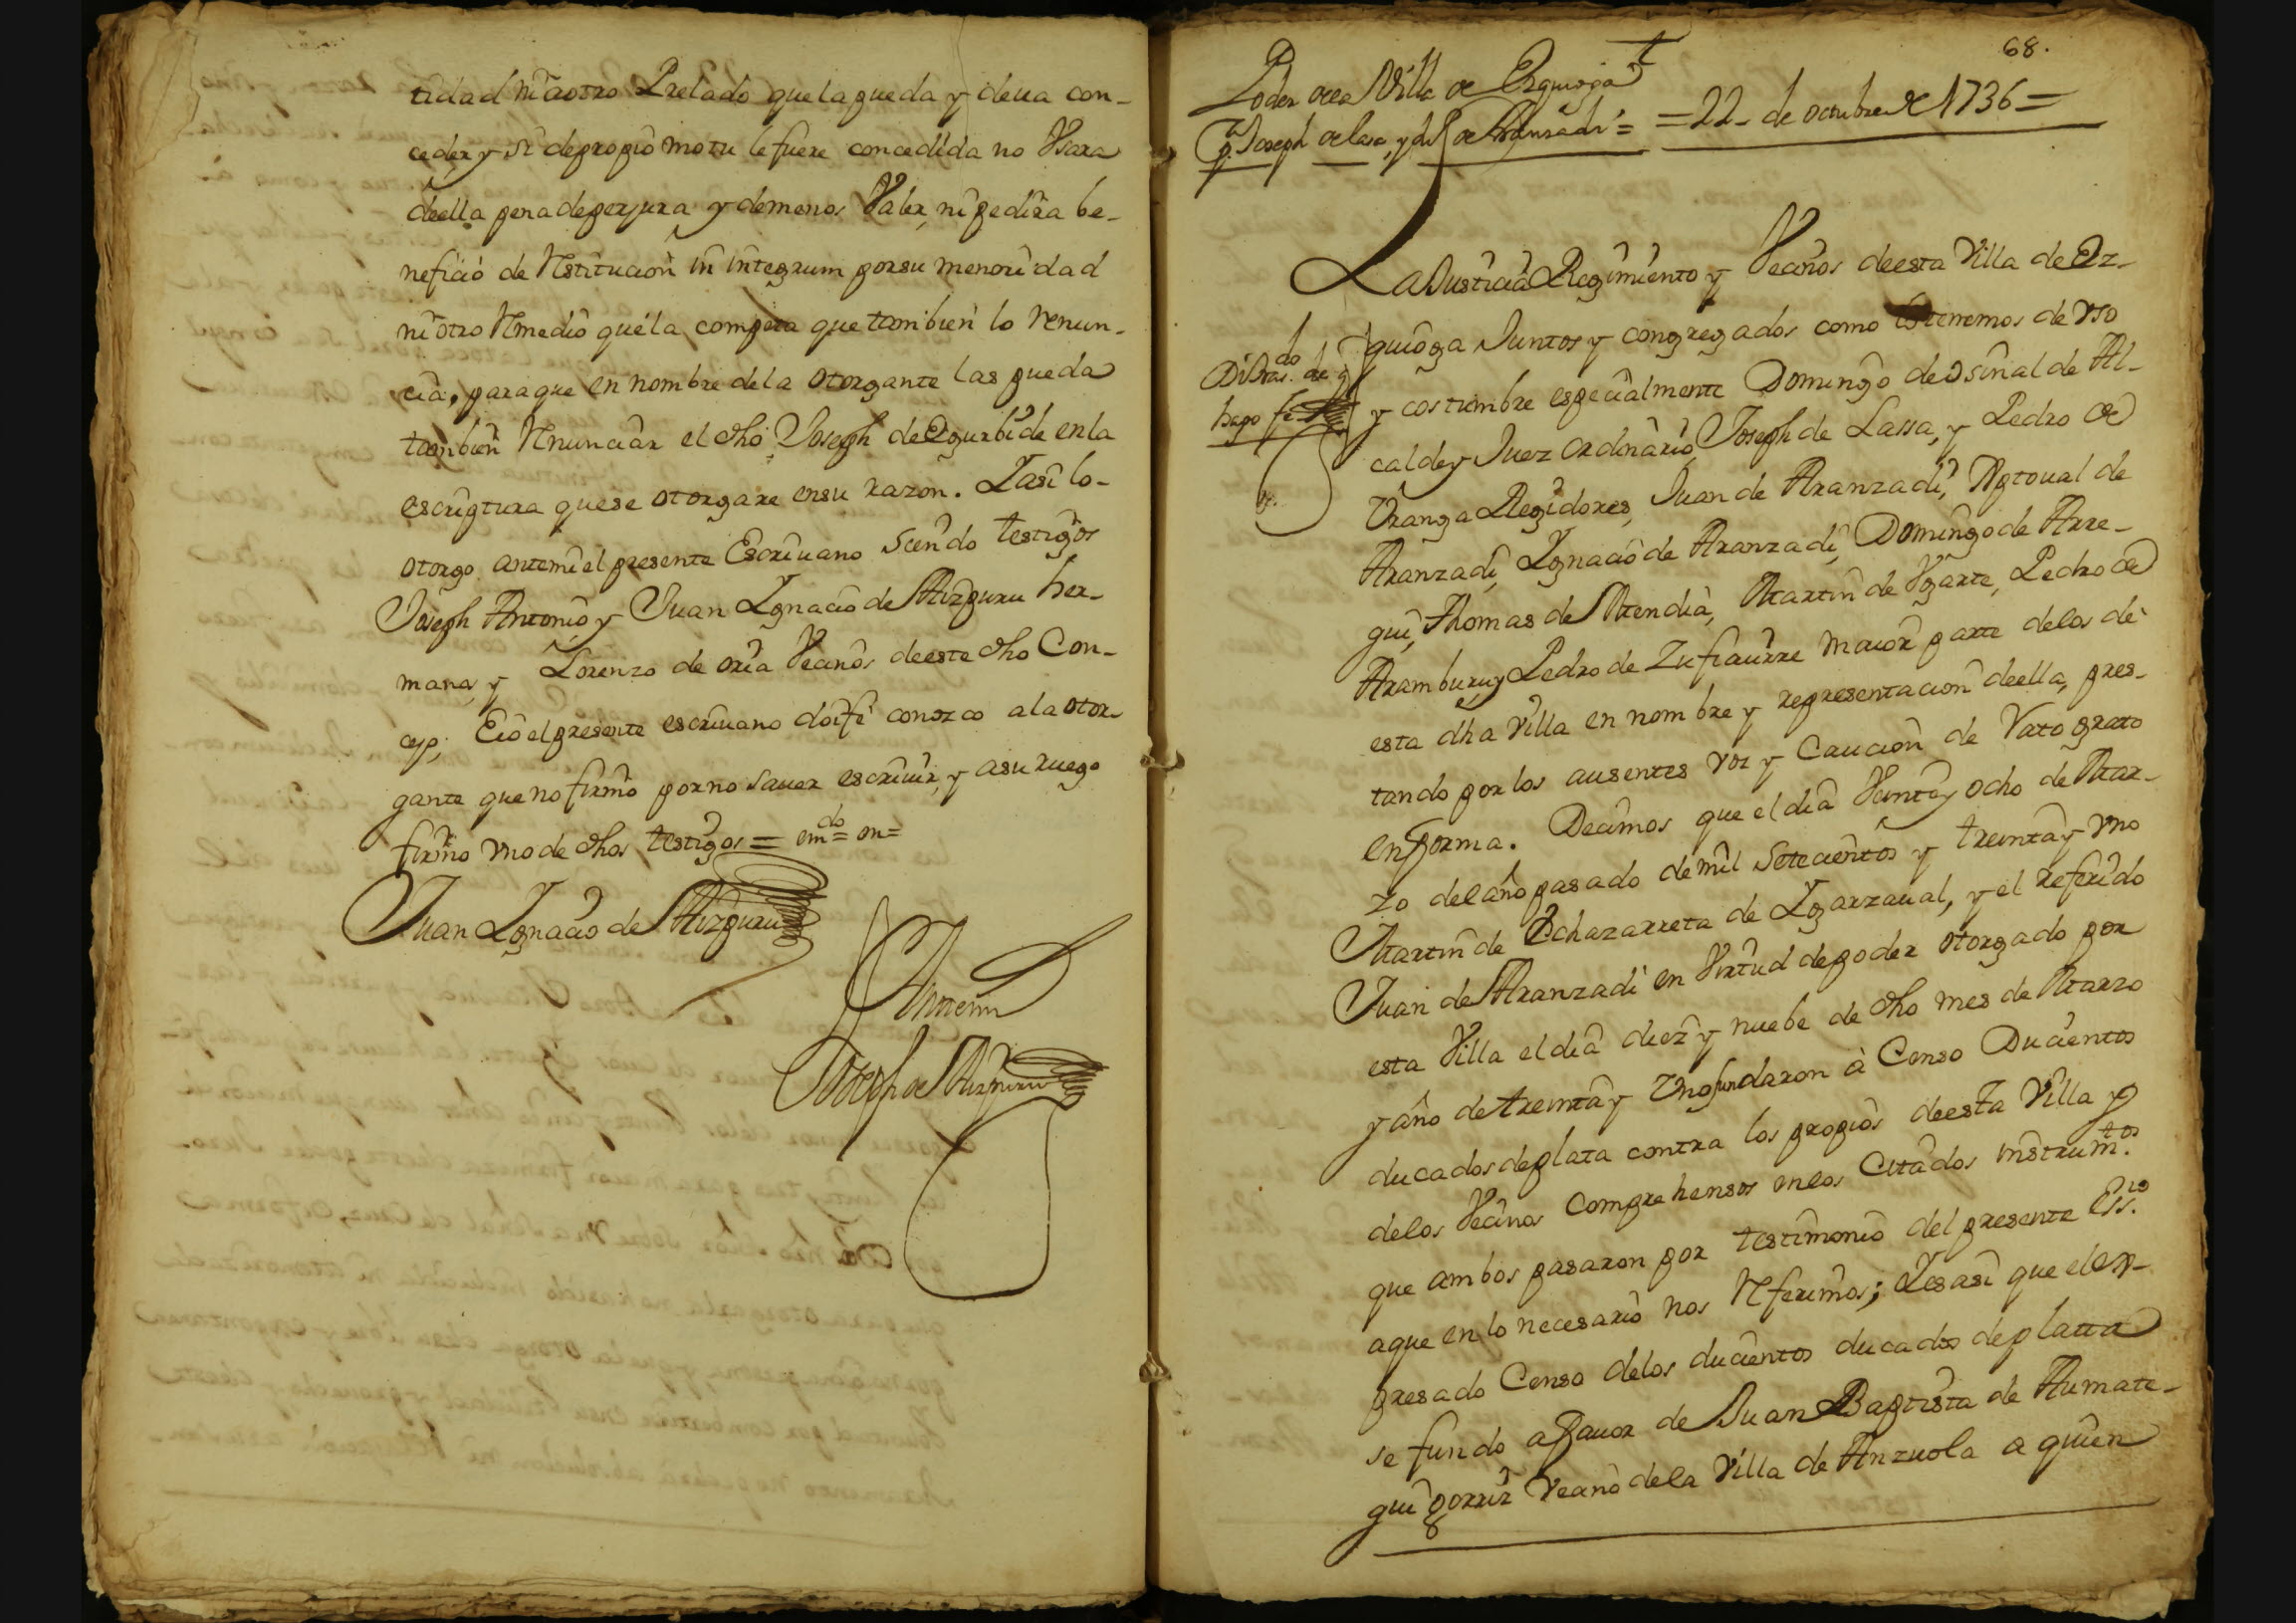 tidad ni à otro Prelado que la pueda y deua con-
ceder, y si de propio motu le fuere concedida no Usara
de ella pena de perjura y de menos Valer, ni pedira be-
neficio de Restitucion in integrum por su menoridad
ni otro Remedio que la competa que tambien lo renun-
cia, para que en nombre de la otorgante las pueda
tambien Renunciar el dho Joseph de Egurbide en la
escriptura que se otorgare en su razon. Y asi lo
otorgo ante mi el presente Escriuano siendo testigos
Joseph Antonio y Juan Ignacio de Aizpuru her-
manos y Lorenzo de oria Vecinos de este dho Con-
cejo, E io el presente escriuano doi fe conozco a la otor-
gante que no firmò por no sauer escriuir, y a su ruego
firmò vno de dhos testigos = em.do = on=
Juan Ignacio de Aizpuru
Ante mi
Joseph de Aizpuru
68.
Poder de la Villa de Ezquioga
a Joseph de Lasa, y de Aranzadi = = 22 - de octubre de 1736 =
La Justicia Regimiento y Vecinos de esta Villa de Ez-
quioga Juntos y congregados como lo tenemos de vso
y costumbre especialmente Domingo de Osinal de Al-
calde y Juez ordinario, Joseph de Lassa, y Pedro de
Vranga Regidores, Juan de Aranzadi, Xptoual de
Aranzadi, Ignacio de Aranzadi, Domingo de Arre-
gui, Thomas de Mendia, Martin de Vgarte, Pedro de
Aramburu, y Pedro de Zufiaurre maior parte de los de
esta dha Villa en nombre y representacion de ella, pres-
tando por los ausentes voz y Caucion de Rato grato
en forma. Decimos que el dia Veinte y ocho de Mar-
zo del año pasado de mil Setecientos y treinta y vno
Martin de Echazarreta de Igarzaual, y el referido
Juan de Aranzadi en Virtud de poder otorgado por
esta Villa el dia diez y nuebe de dho mes de Marzo
y año de treinta y Vno fundaron à Censo Ducientos
ducados de plata contra los propios de esta Villa y
de los Vecinos comprehensos en los Citados instrum.tos
que ambos pasaron por testimonio del presente Ess.no
a que en lo necesario nos Referimos; Y es asi que el ex-
presado Censo de los ducientos ducados de platta
se fundo a fauor de Juan Baptista de Aumate-
gui gorrir Vecino de la Villa de Anzuola a quien
hago fe